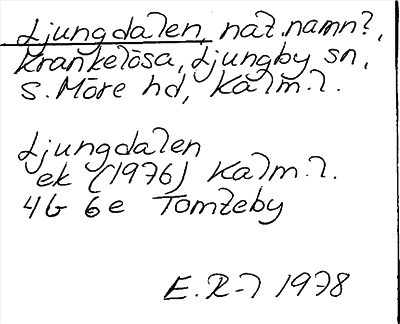 Ljungdalen, nat.namn?,
Krankelösa, Ljungby sn,
S. Möre hd, Kalm. l.
Ljungdalen
ek (1976) Kalm. l.
4G 6e Tomteby
E. R-l 1978